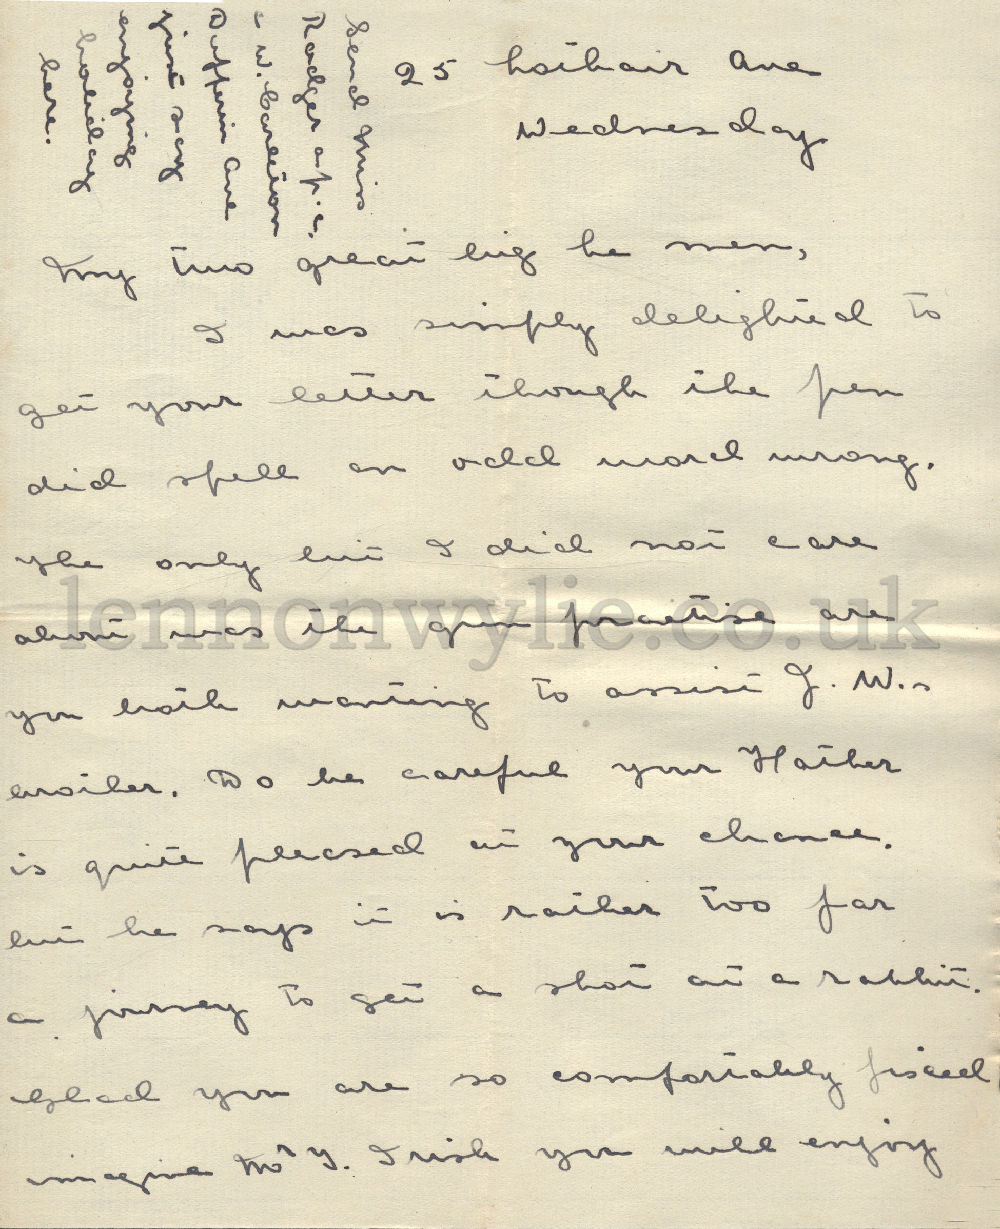 25 Lothair Ave
Wednesday
Send Miss
Rodger a p.c.
1 W. Carlton
Dufferin Ave
just say
enjoying
holiday
here.
My two great big he men,
I was simply delighted to
get your letter though the pen
did spell an odd word wrong.
The only bit I did not care
about was the gun practise are
you both wanting to assist J. W.s
broiler. Do be careful your Father
is quite pleased at your chance.
but he says it is rather too far
a journey to get a shot at a rabbit.
Glad you are so comfortably fixed
imagine Mr Y. Irish you will enjoy
lennonwylie.co.uk